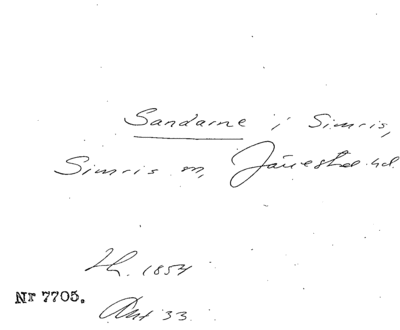 Sandarne i Simris,
Simris sn, Järrestad hd.
Lh. 1854
Nr 7705.
Akt 33.